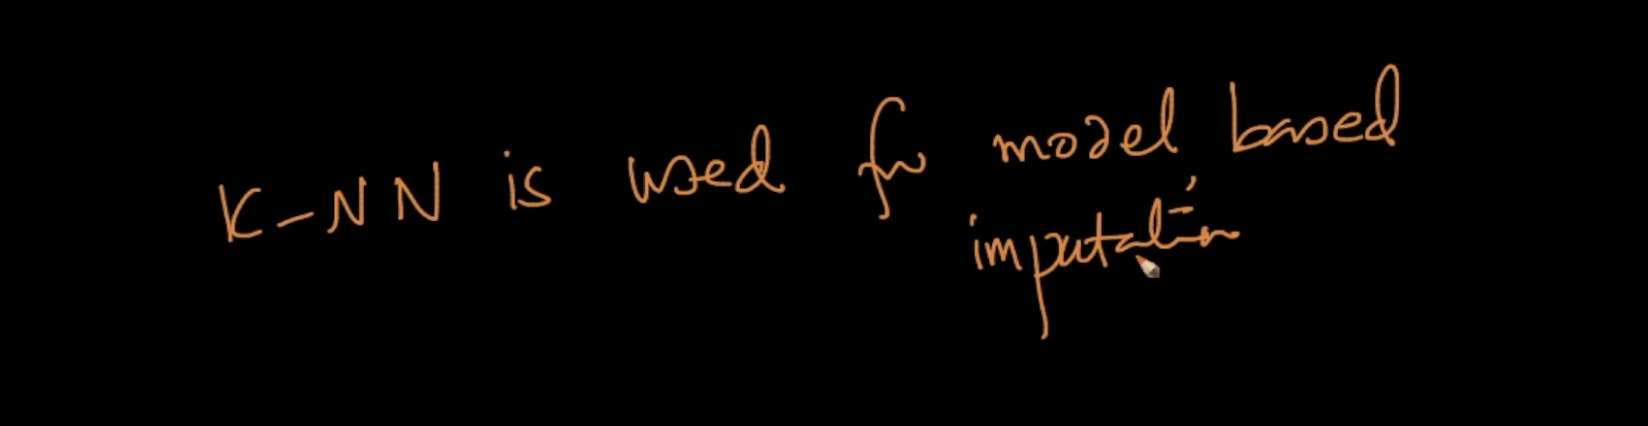 K-NN is used for model based
imputation